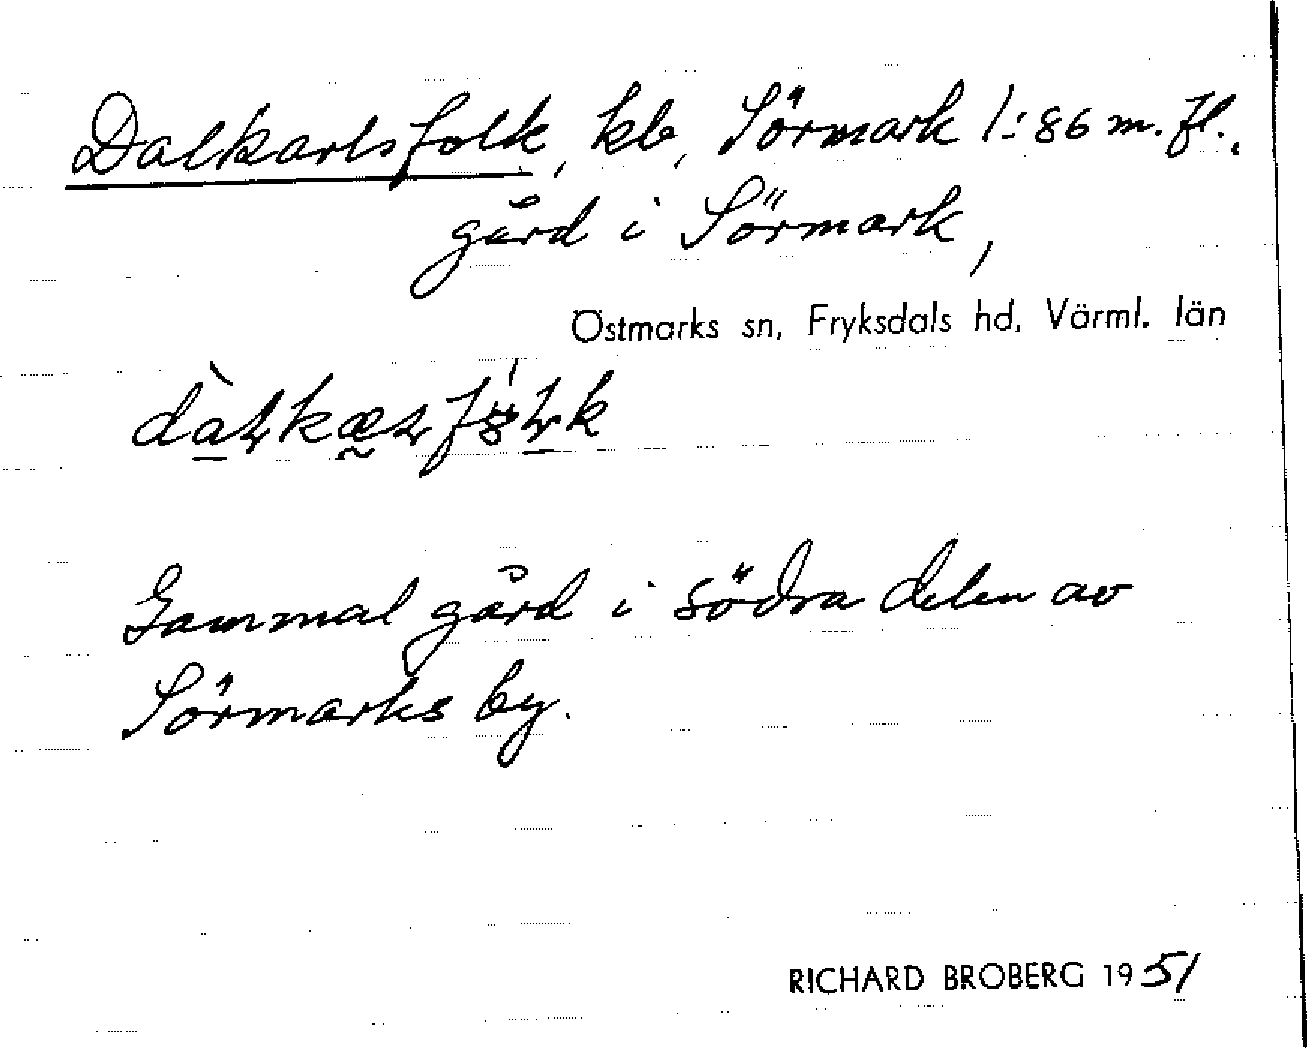 Dalkarlsfolk, kb, Sörmark 1:86 m. fl.,
gård i Sörmark,
Östmarks sn, Fryksdals hd, Värml. län
Gammal gård i södra delen av
Sörmarks by.
RICHARD BROBERG 1951